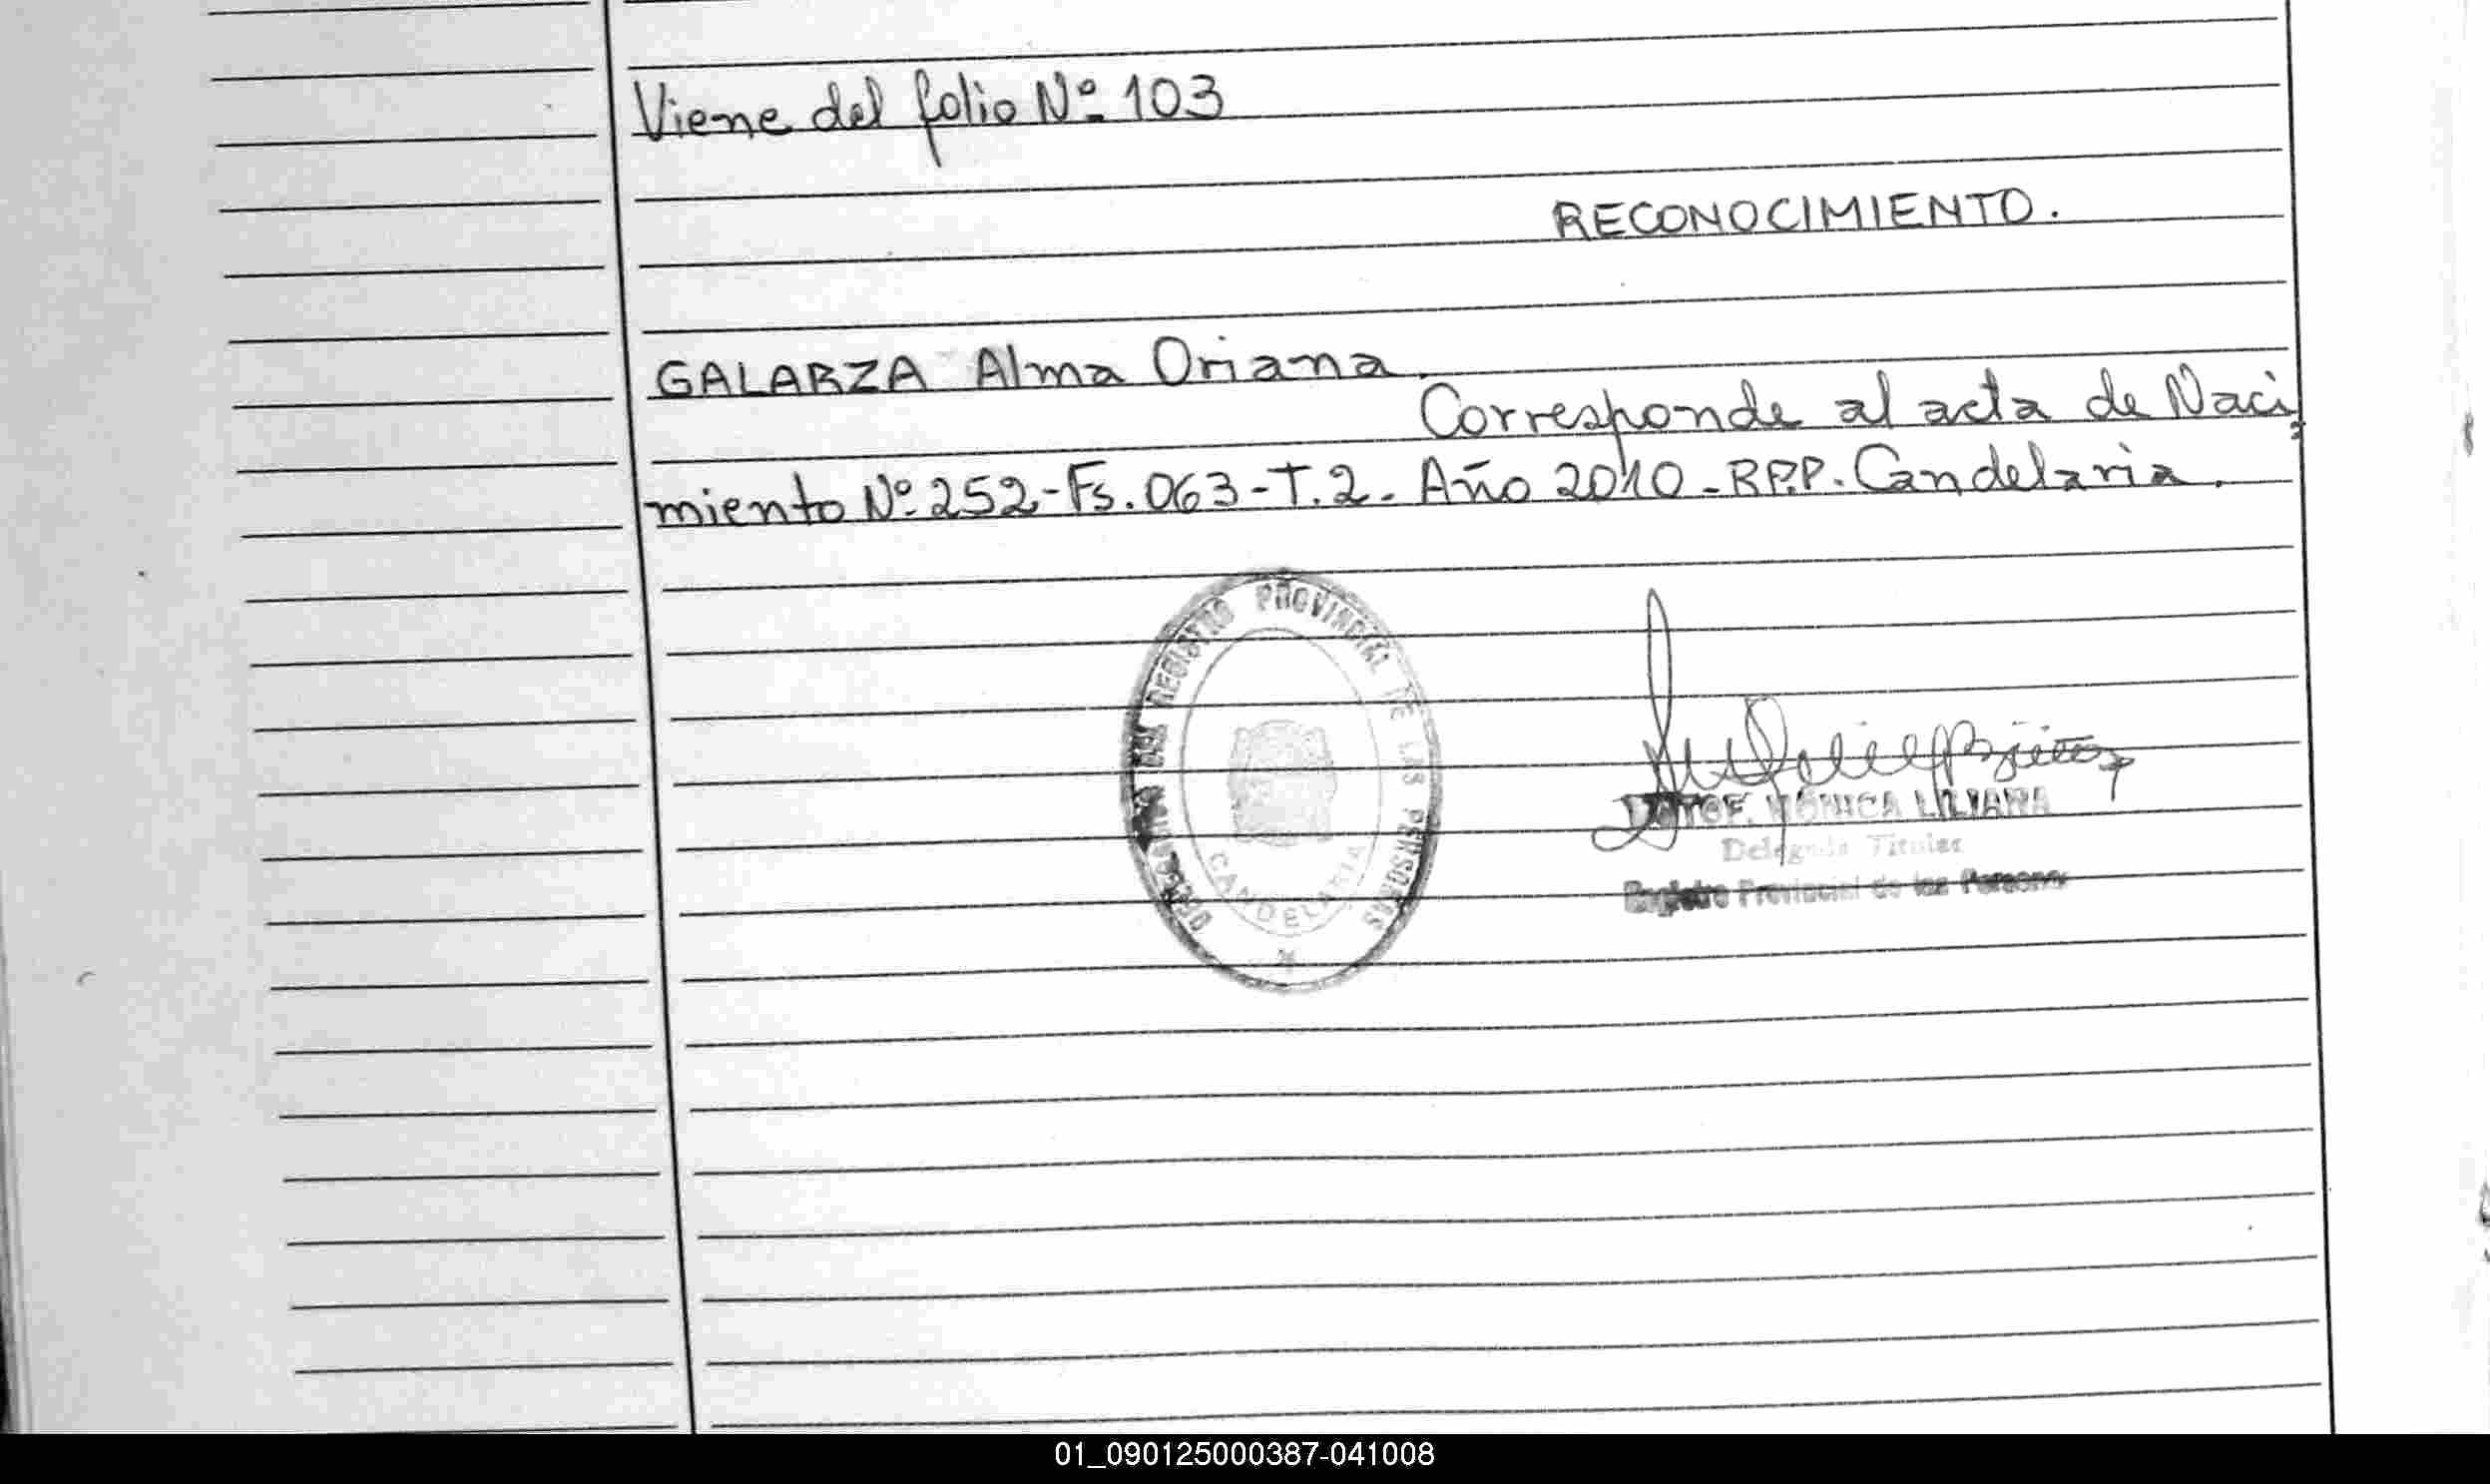 Viene del folio Nº 103
RECONOCIMIENTO.
GALARZA Alma Oriana.
Corresponde al acta de Naci
miento Nº 252-Fs. 063-T.2. Año 2010-R.P.P. Candelaria.
DELEGACION DEL REGISTRO PROVINCIAL DE LAS PERSONAS
CANDELARIA
MÓNICA LILIANA
Delegada Titular
Registro Provincial de las Personas
01_090125000387-041008